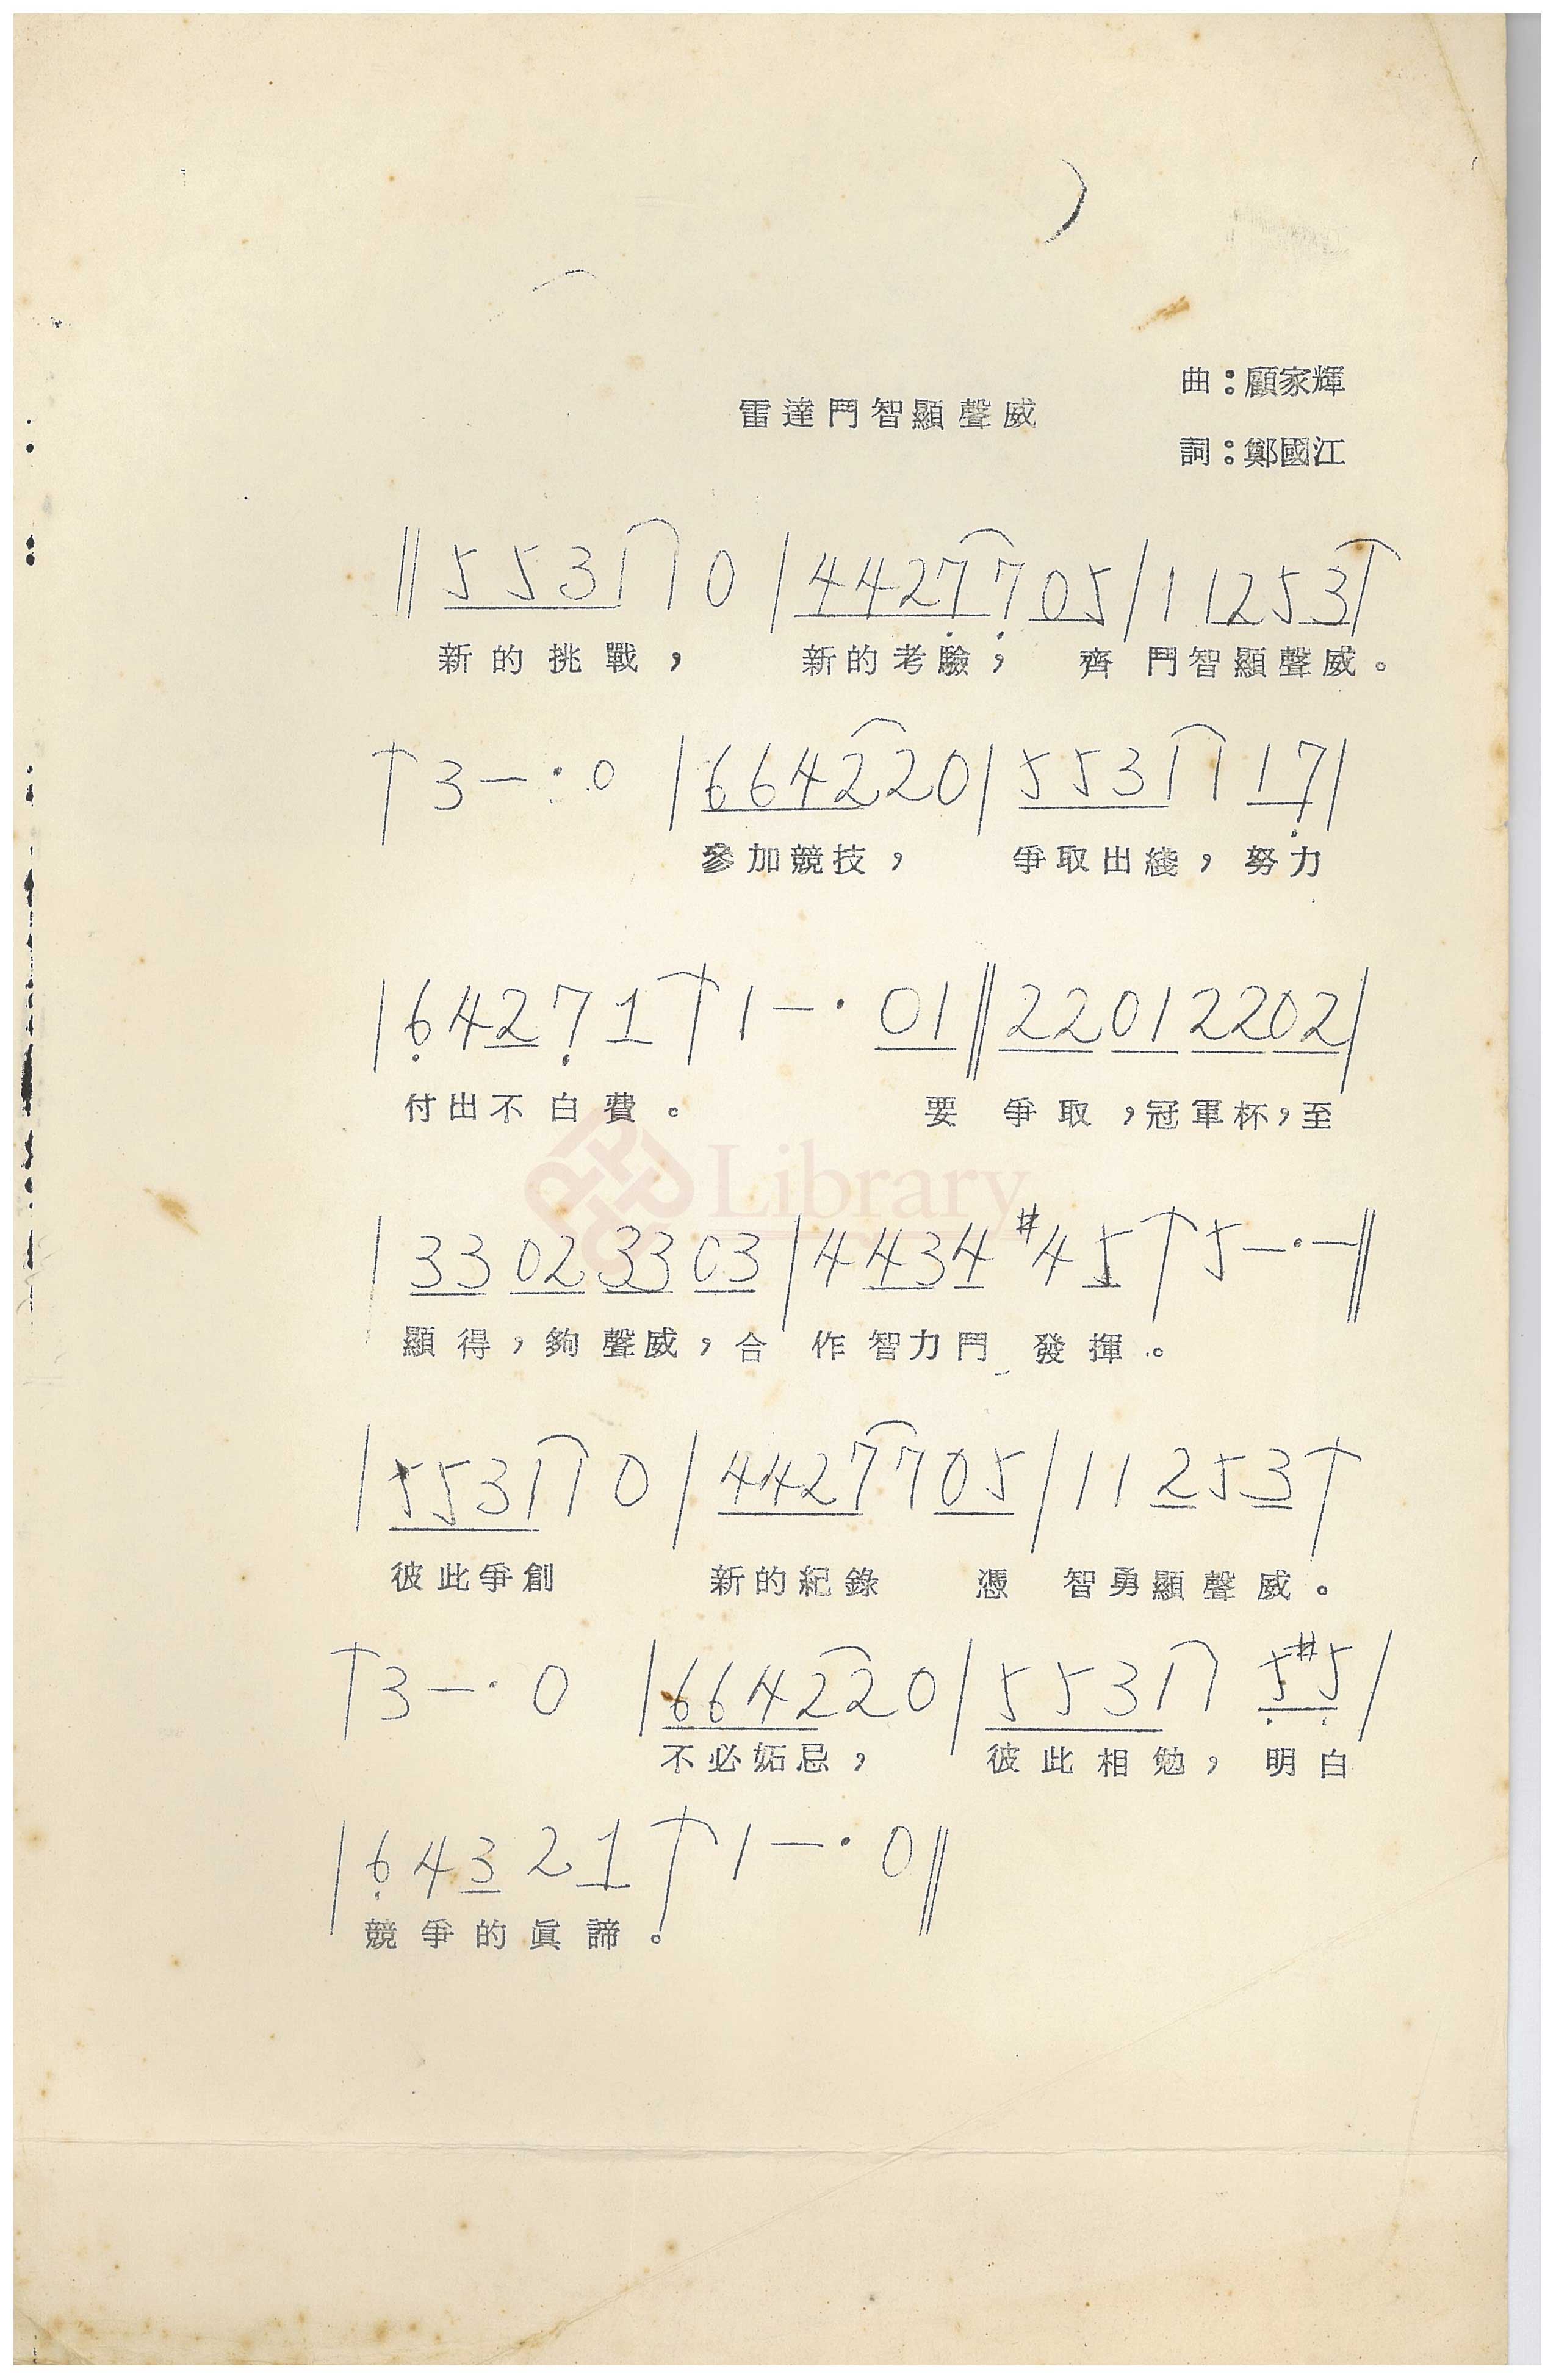 曲：顧家輝
雷達鬥智顯聲威
詞：鄭國江
‖ 5 5 3 1 1 0 | 4 4 2 7 7 0 5 | 1 1 2 5 3 |
新的挑戰， 新的考驗， 齊 鬥智顯聲威。
| 3 — · 0 | 6 6 4 2 2 0 | 5 5 3 1 1 1 7 |
參加競技， 爭取出綫，努力
| 6 4 2 7 1 | 1 — · 0 1 ‖ 2 2 0 1 2 2 0 2 |
付出不白費。 要 爭取，冠軍杯，至
Library
| 3 3 0 2 3 3 0 3 | 4 4 3 4 #4 5 | 5 — · — ‖
顯得，夠聲威，合 作智力鬥 發揮。
| 5 5 3 1 1 0 | 4 4 2 7 7 0 5 | 1 1 2 5 3 |
彼此爭創 新的紀錄 憑 智勇顯聲威。
| 3 — · 0 | 6 6 4 2 2 0 | 5 5 3 1 1 5 #5 |
不必妬忌， 彼此相勉，明白
| 6 4 3 2 1 | 1 — · 0 ‖
競爭的眞諦。